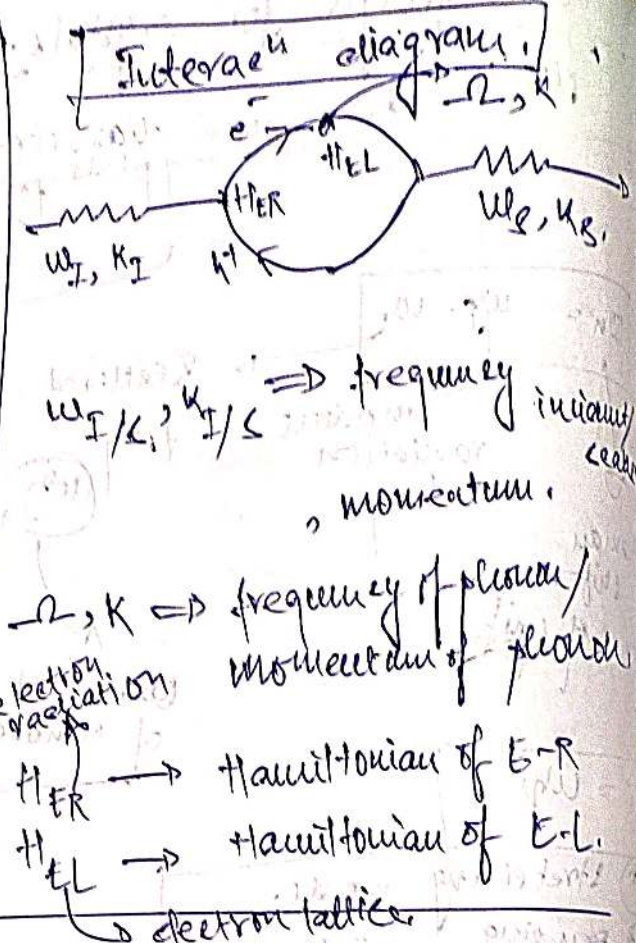 Interacⁿ diagram.
Ω, K.
e⁻
H_EL
H_ER
ω_I, K_I
h⁺
ω_S, K_S.
ω_I/S, K_I/S ⇒ frequency incident/
, momentum.
Ω, K ⇒ frequency of phonon/
momentum of phonon
electron
radiation
H_ER → Hamiltonian of E-R
H_EL → Hamiltonian of E-L.
electron lattice